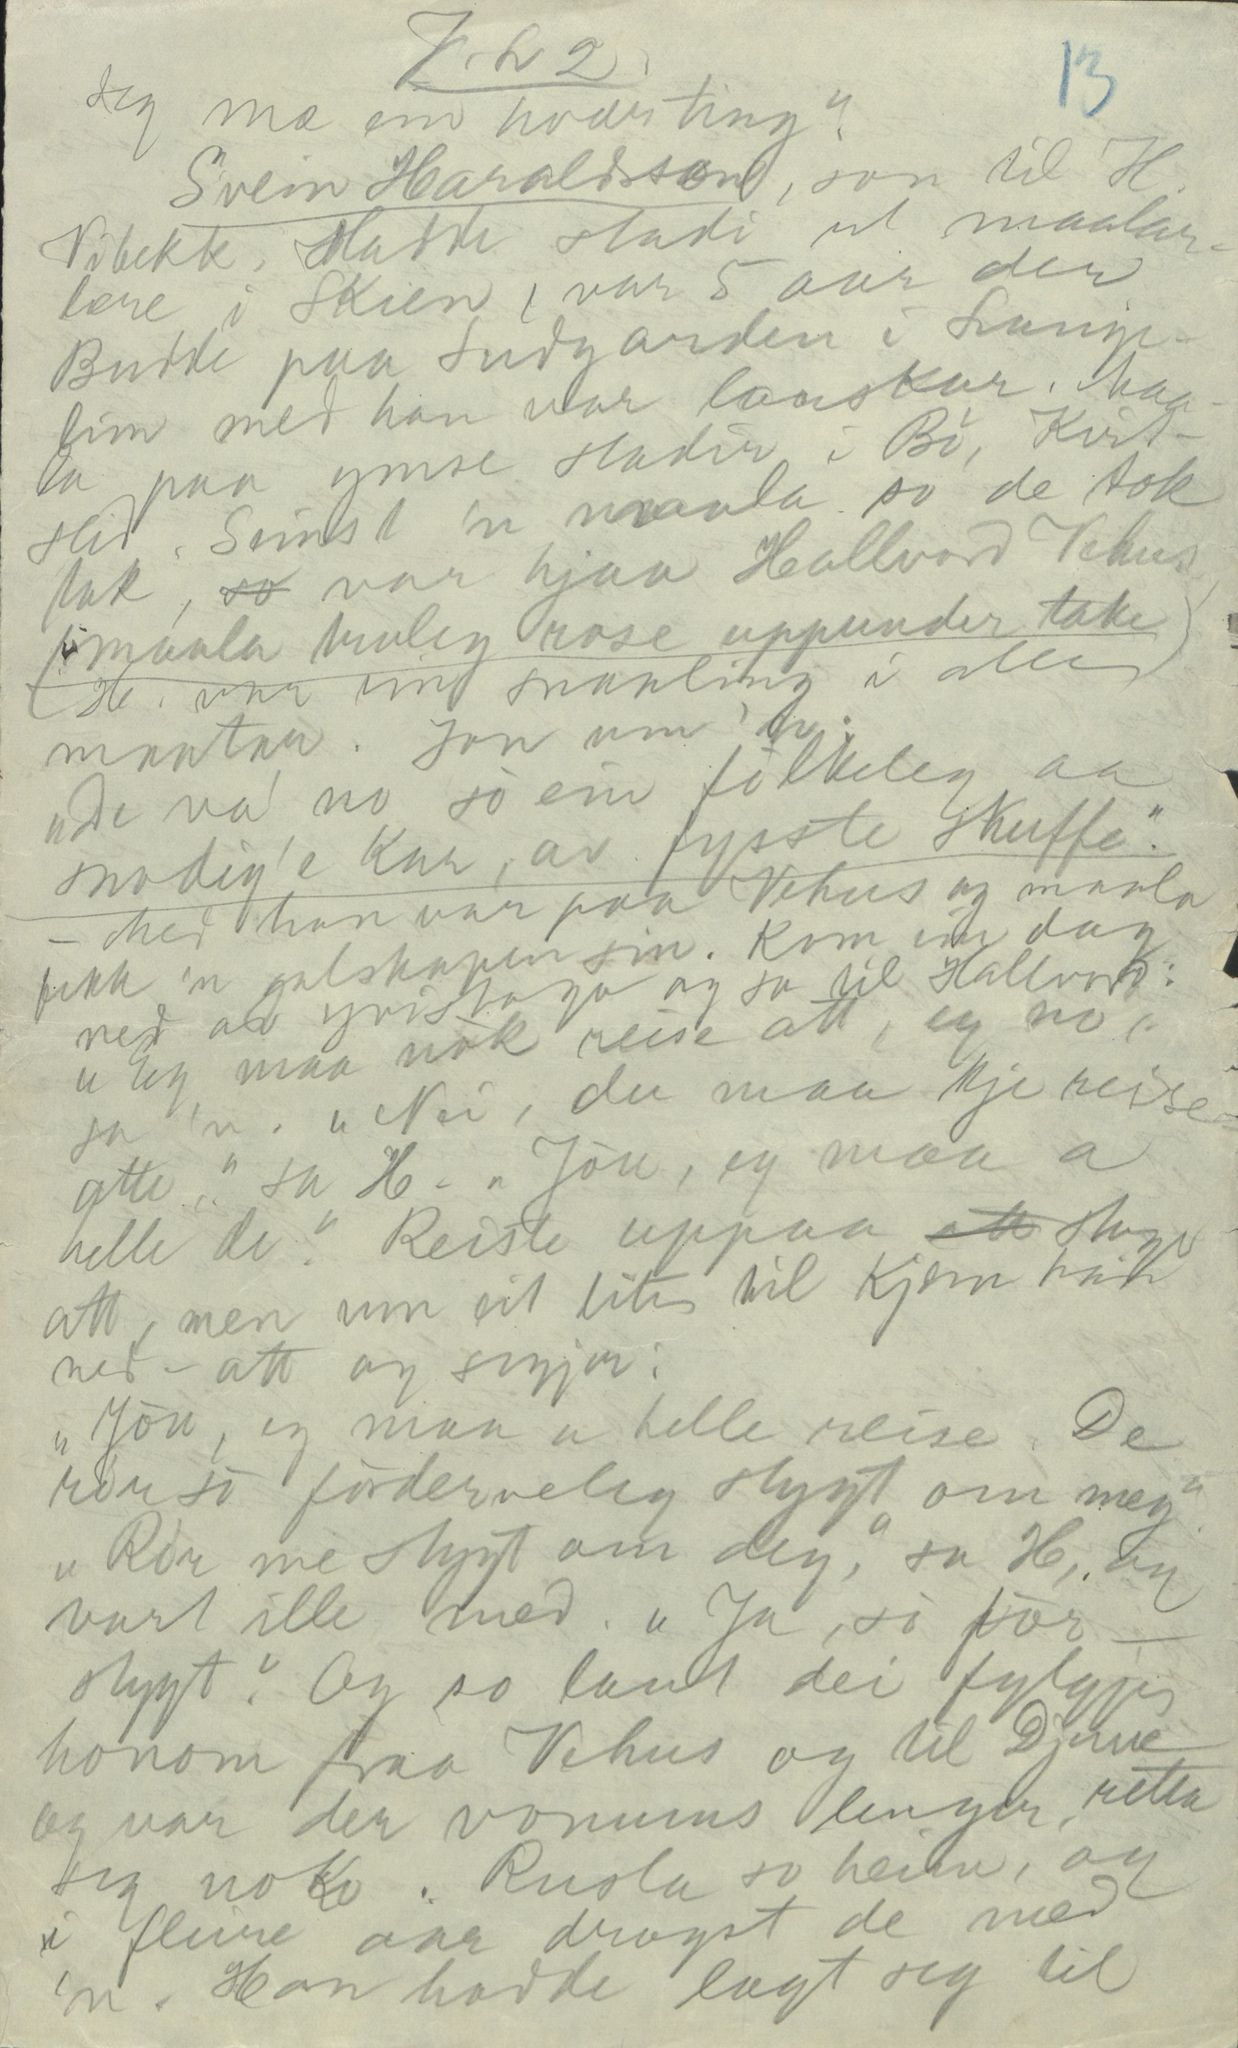 13
deg mæ ein hoderting".
Svein Haraldsson, son til H.
Vibekk. Hadde stadi ut maalar-
lære i Skien, var 5 aar der
Budde paa Sudgarden i
med han var lauskar. Maa-
la paa ymse stadir i Bø,
Sinst 'n maala so de tok
tak, so var hjaa Hallvord Vehus
(maala truleg rose uppunder take)
H. var ein snaaling i alle
maatar. Jon um 'n:
"De va' no so ein fölkeleg aa
snodig'e kar, av fysste skuffe".
– Med han var paa Vehus og maala
fekk 'n galskapen sin. Kom ein dag
ned av og sa til Hallvord:
"Eg maa nök reise att, eg no,"
sa 'n. "Nei, du maa kje reise
atte," sa H. "Jöu, eg maa a
helle de". Reiste uppaa att
att, men um eit lite til kjem han
ned-att og segjer:
"Jöu, eg maa a helle reise. De
rör sö förderveleg stygt om meg"
"Rör me stygt om deg," sa H, og
vart ille med. "Ja, sö för
stygt". Og so laut dei fylgje
honom fraa Vehus og til Djuve
og var der vonums lenger, retta
seg noko. Rusla so heim, og
i fleire aar drogst de med
'n. Han hadde lagt seg til